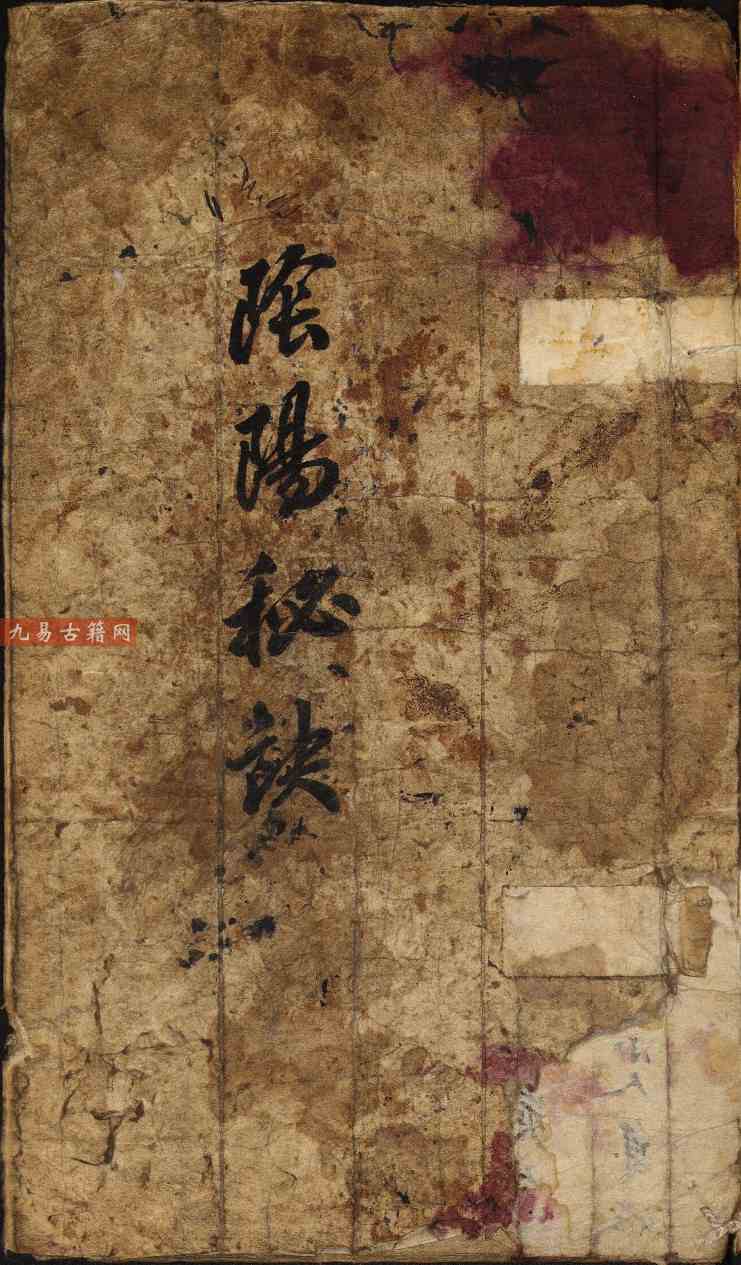 陰陽秘訣
九易古籍网